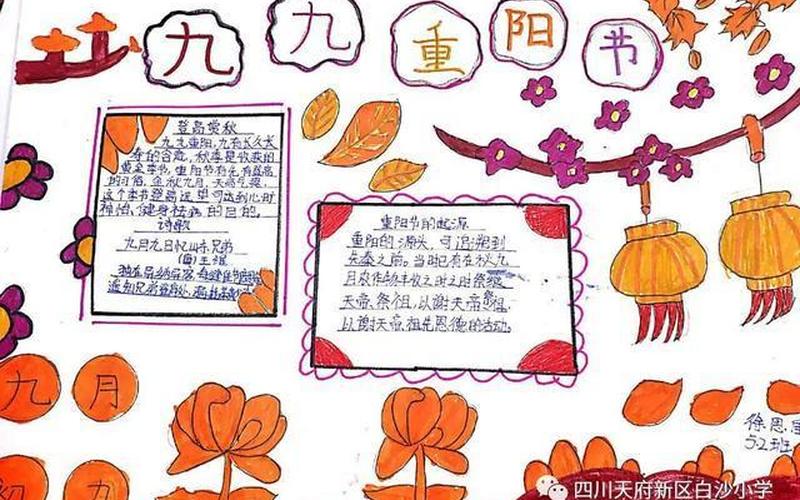 九九重阳节
登高赏秋
九九重阳,九有长久长
寿的含意,秋季是收获的
黄金季节,重阳节有先有登高
的习俗,金秋九月,天高气爽,
这个季节登高远望可达到心旷
神怡、健身祛病的目的。
诗歌
九月九日忆山东兄弟
(唐)王维
独在异乡为异客,每逢佳节倍思亲
遥知兄弟登高处,遍插茱萸
重阳节的起源
重阳的源头,可追溯到
先秦之前。当时已有在秋九
月农作物丰收之时之时祭飨
天帝、祭祖,以谢天帝、祖
以谢天帝、祖先恩德的活动。
九月
初九
徐恩
5.2班
四川天府新区白沙小学